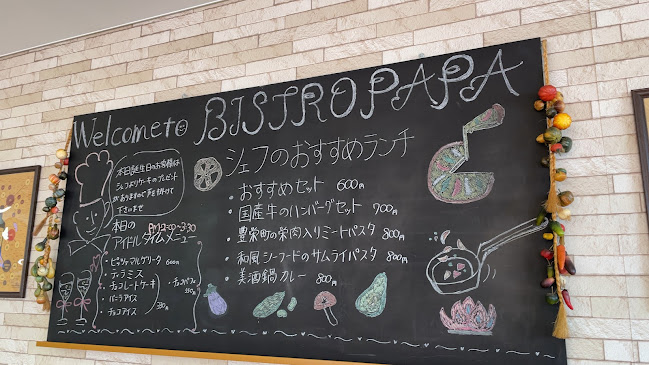 Welcome to BISTRO PAPA
シェフのおすすめランチ
・おすすめセット 600円
・国産牛のハンバーグセット 700円
・豊栄町の栄肉入りミートパスタ 800円
・和風シーフードのサムライパスタ 800円
・美酒鍋カレー 800円
本日誕生日のお客様は
シェフよりケーキのプレゼント
がありますので声を掛けて
下さいませ
本日の PM2:00~3:30
アイドルタイムメニュー
・ピッツァマルゲリータ 600円
・ティラミス
・チョコレートケーキ
・バニラアイス
・チョコアイス
350円